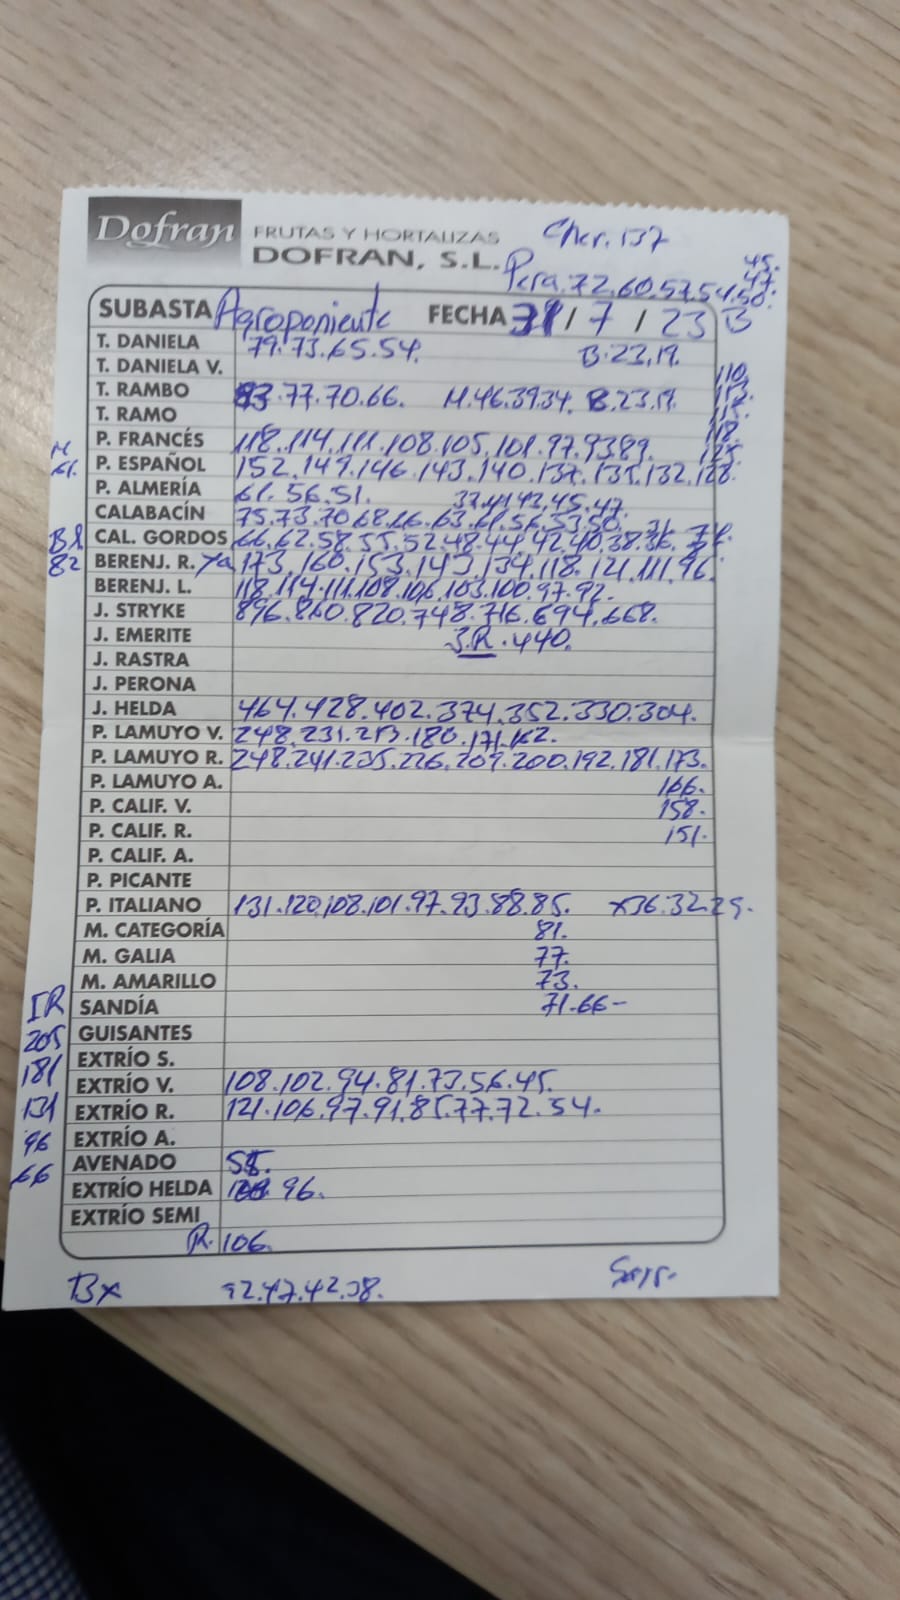 Dofran FRUTAS Y HORTALIZAS
DOFRAN, S.L.
Cher. 137
Pera. 72.60.57.54.50.
47.
45.
SUBASTA Agroponiente FECHA 31 / 7 / 23 B
T. DANIELA 79.73.65.54. B.23.19.
T. DANIELA V.
T. RAMBO 83.77.70.66. M.46.39.34. B.23.19.
T. RAMO
P. FRANCÉS 118.114.111.108.105.101.97.93.89.
P. ESPAÑOL 152.149.146.143.140.137.135.132.128.
110
118.
M
61.
P. ALMERÍA 61.56.51. 37.41.43.45.47.
CALABACÍN 75.73.70.68.66.63.61.56.53.50.
CAL. GORDOS 66.62.58.55.52.48.44.42.40.38.36.
Bl
82
BERENJ. R. Ya 173.160.153.143.134.118.121.111.96.
BERENJ. L. 118.114.111.108.106.103.100.97.92.
J. STRYKE 896.860.820.748.716.694.668.
J. EMERITE J.R.440.
J. RASTRA
J. PERONA
J. HELDA 464.428.402.374.352.330.304.
P. LAMUYO V. 248.231.213.180.171.162.
P. LAMUYO R. 248.241.235.226.209.200.192.181.173.
P. LAMUYO A. 166.
P. CALIF. V. 158.
P. CALIF. R. 151.
P. CALIF. A.
P. PICANTE
P. ITALIANO 131.120.108.101.97.93.88.85. x36.32.29.
M. CATEGORÍA 81.
M. GALIA 77.
M. AMARILLO 73.
SANDÍA 71.66-
GUISANTES
EXTRÍO S.
EXTRÍO V. 108.102.94.81.73.56.45.
EXTRÍO R. 121.106.97.91.85.77.72.54.
EXTRÍO A.
AVENADO 58.
EXTRÍO HELDA 96.
EXTRÍO SEMI
R. 106.
IR
205
181
131
96
66
Bx 92.47.42.38.